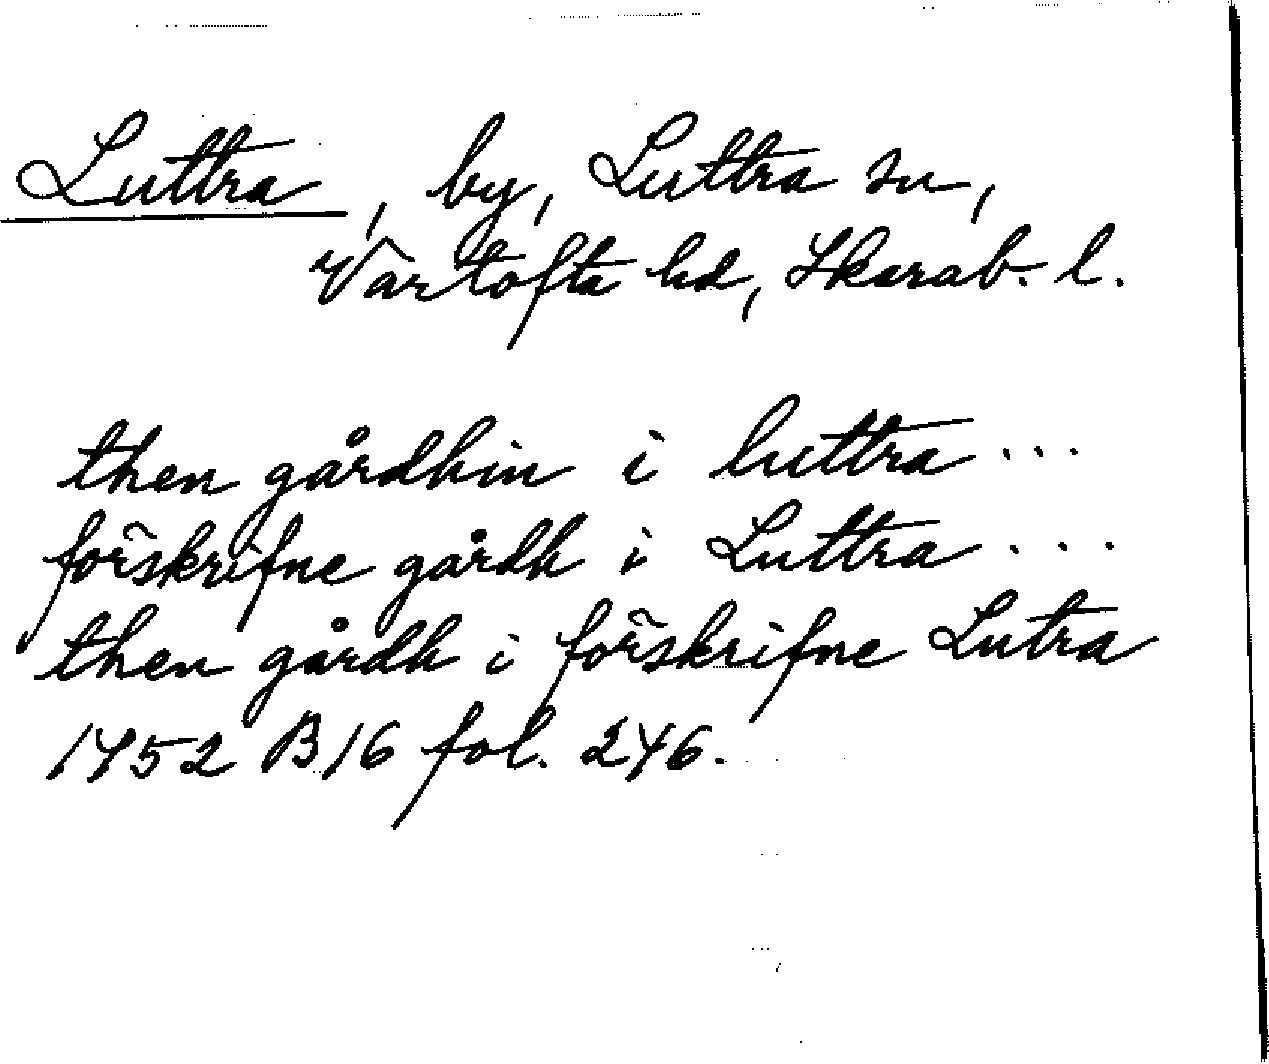 Luttra, by, Luttra sn,
Vartofta hd, Skarab. l.
then gårdhin i luttra ...
förskrifne gårdh i Luttra ...
then gårdh i förskrifne Lutra
1452 B16 fol. 246.